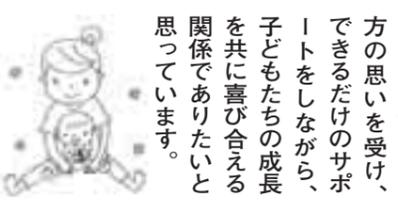 方の思いを受け、
できるだけのサポ
ートをしながら、
子どもたちの成長
を共に喜び合える
関係でありたいと
思っています。